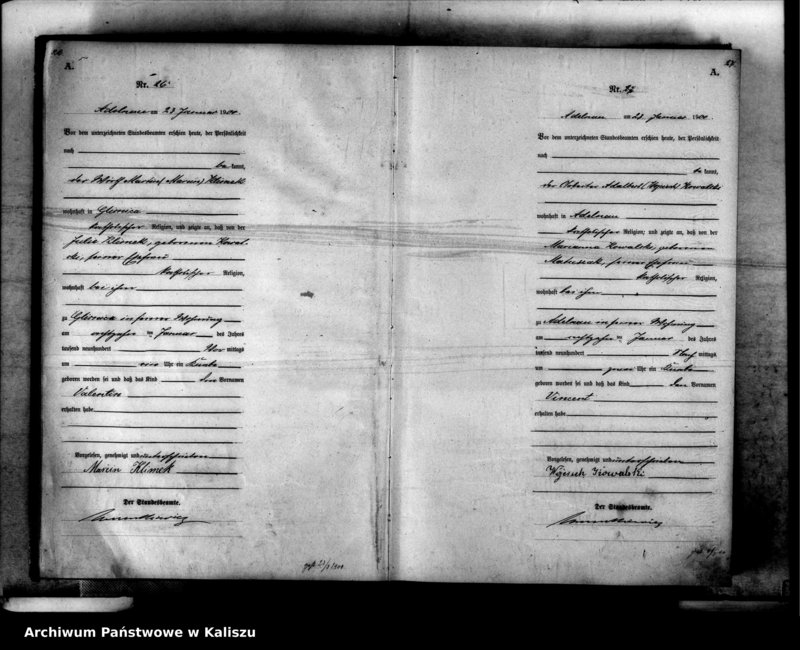 A.
Nr. 26.
Adelnau am 23. Januar 1900.
Vor dem unterzeichneten Standesbeamten erschien heute, der Persönlichkeit
nach
be kannt,
der Wirth Martin (Marcin) Klimek
wohnhaft in Glisnica
katholischer Religion, und zeigte an, daß von der
Julie Klimek, geborenen Kowal-
ski, seiner Ehefrau
katholischer Religion,
wohnhaft bei ihm
zu Glisnica in seiner Wohnung
am des Januar des Jahres
tausend neunhundert Vor mittags
um Uhr ein Knabe
geboren worden sei und daß das Kind den Vornamen
Valentin
erhalten habe
Vorgelesen, genehmigt und unterschrieben
Marcin Klimek
Der Standesbeamte.
27
A.
Nr. 27
Adelnau am 23. Januar 1900.
Vor dem unterzeichneten Standesbeamten erschien heute, der Persönlichkeit
nach
be kannt,
der Arbeiter Adalbert (Wojciech) Kowalski
wohnhaft in Adelnau
katholischer Religion, und zeigte an, daß von der
Marianna Kowalski, geborenen
Matuszczak, seiner Ehefrau
katholischer Religion,
wohnhaft bei ihm
zu Adelnau in seiner Wohnung
am des Januar des Jahres
tausend neunhundert Nach mittags
um Uhr ein Knabe
geboren worden sei und daß das Kind den Vornamen
Vincent
erhalten habe
Vorgelesen, genehmigt und unterschrieben
Kowalski
Der Standesbeamte.
Archiwum Państwowe w Kaliszu